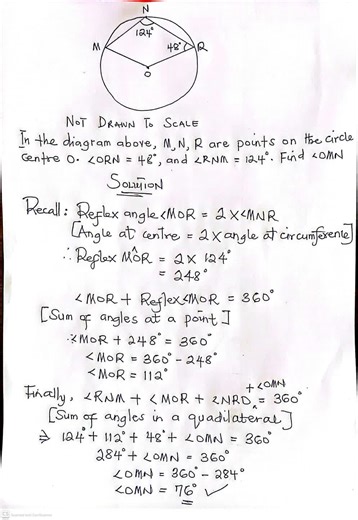 N
124°
M
48°
R
O
NOT DRAWN TO SCALE
In the diagram above, M, N, R are points on the circle
centre O. ∠ORN = 48°, and ∠RNM = 124°. Find ∠OMN
SOLUTION
Recall: Reflex angle ∠MOR = 2 X ∠MNR
[Angle at centre = 2 X angle at circumference]
∴ Reflex MÔR = 2 X 124°
= 248°
∠MOR + Reflex ∠MOR = 360°
[Sum of angles at a point]
∴ ∠MOR + 248° = 360°
∠MOR = 360° - 248°
∠MOR = 112°
Finally, ∠RNM + ∠MOR + ∠NRO + ∠OMN = 360°
[Sum of angles in a quadilateral]
⇒ 124° + 112° + 48° + ∠OMN = 360°
284° + ∠OMN = 360°
∠OMN = 360° - 284°
∠OMN = 76° ✓